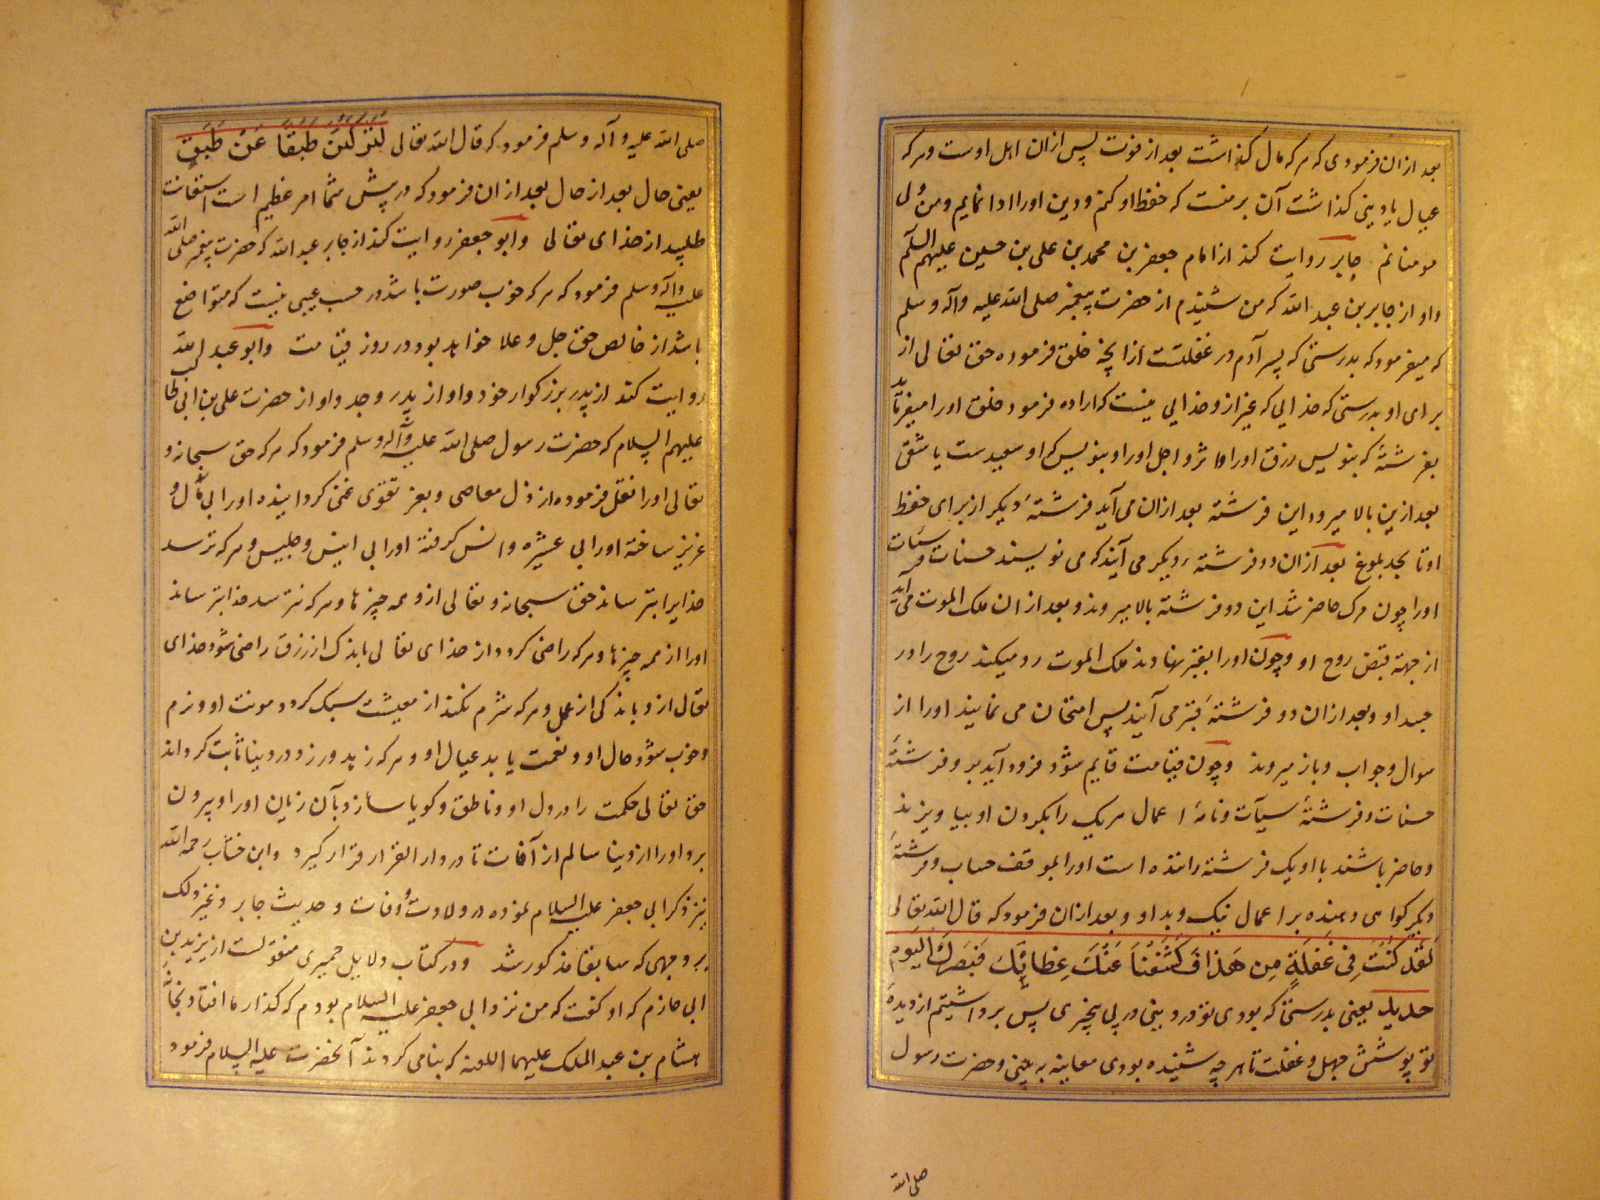 بعد ازان فرمودی که هر که مال گذاشت بعد از فوت پس ازان اهل اوست و هر که
عیال یا دینی گذاشت آن بر منست که حفظ او کنم و دین او را ادا نمایم و من ولی
مومنانم جابر روایت کند از امام جعفر بن محمد بن علی بن حسین علیهم السلام
و او از جابر بن عبد الله که من شنیدم از حضرت پیغمبر صلی الله علیه و آله و سلم
که میفرمود که بدرستی که پسر آدم در غفلتست از آنچه خلق فرموده حق تعالی از
برای او بدرستی که خدائی که غیر از و خدایی نیست که اراده فرمود خلق او را میفرماید
بفرشتهٔ که بنویس رزق او را و اثر و اجل او را و بنویس که او سعیدست یا شقی
بعد ازین بالا میرود این فرشته بعد ازان می آید فرشتهٔ دیگر از برای حفظ
او تا بحد بلوغ بعد ازان دو فرشته دیگر می آیند که می نویسند حسنات و سیئات
او را چون مرگ حاضر شد این دو فرشته بالا میروند و بعد از ان ملک الموت می آید
از جهة قبض روح او و چون او را بقبر نهادند ملک الموت رد میکند روح را در
جسد او و بعد ازان دو فرشتهٔ قبر می آیند پس امتحان می نمایند او را از
سوال و جواب و باز میروند و چون قیامت قایم شود فرود آید بر و فرشتهٔ
حسنات و فرشتهٔ سیآت و نامهٔ اعمال هر یک را بگردن او بیاویزند
و حاضر باشند با او یک فرشته راننده است او را بموقف حساب و فرشتهٔ
دیگر گواهی دهنده بر اعمال نیک و بد او و بعد ازان فرمود که قال الله تعالی
لَقَدْ كُنْتَ فِی غَفْلَةٍ مِن هَذَا فَكَشَفْنَا عَنْكَ غِطَائَكَ فَبَصَرُكَ الْیَوْمَ
حدید یعنی بدرستی که بودی تو در دنیا در بی خبری پس برداشتیم از دیدهٔ
تو پوشش جهل و غفلت تا هر چه شنیده بودی معاینه به بینی و حضرت رسول
صلی الله
صلی الله علیه و آله و سلم فرمود که قال الله تعالی لَتَرْكَبُنَّ طَبَقًا عَنْ طَبَقٍ
یعنی حال بعد از حال بعد از ان فرمود که در پیش شما امر عظیم است استعانت
طلبید از خدای تعالی و ابو جعفر روایت کند از جابر عبد الله که حضرت پیغمبر صلی الله
علیه و آله و سلم فرمود که هر که خوب صورت باشد و در حسب عیبی نیست که متواضع
باشد از خالص حق جل و علا خواهد بود در روز قیامت و ابو عبد الله
روایت کند از پدر بزرگوار خود و او از پدر و جد و او از حضرت علی بن ابی طالب
علیهم السلام که حضرت رسول صلی الله علیه و آله و سلم فرمود که هر که حق سبحانه و
تعالی او را نقل فرموده از ذل معاصی و بعز تقوی غنی گردانیده او را بی مال و
عزیز ساخته او را بی عشیره و انس گرفته او را بی انیس و جلیس و هر که ترسد
خدایرا بترساند حق سبحانه و تعالی ازو همه چیزها و هر که نترسد خدا بترساند
او را از همه چیزها و هر که راضی گردد از خدای تعالی باندک از رزق راضی شود خدای
تعالی ازو باندکی از عمل و هر که شرم نکند از معیشت سبک گردد مونت او و نرم
و خوب شود حال او و نعمت یابد عیال او و هر که زهد ورزد در دنیا ثابت گرداند
حق تعالی حکمت را در دل او و ناطق و گویا سازد بآن زبان او را و بیرون
برد او را از دنیا سالم از آفات تا در دار القرار قرار گیرد و ابن خشاب رحمه الله
نیز ذکر ابی جعفر علیه السلام نموده در ولادت و وفات و حدیث جابر و غیر ذلک
بر وجهی که سابقا مذکور شد و در کتاب دلایل حمیری منقولست از یزید بن
ابی حازم که او گفت که من نزد ابی جعفر علیه السلام بودم که گذار ما افتاد بخانهٔ
هشام بن عبد الملک علیهما اللعنه که بنا می کردند آنحضرت علیه السلام فرمود